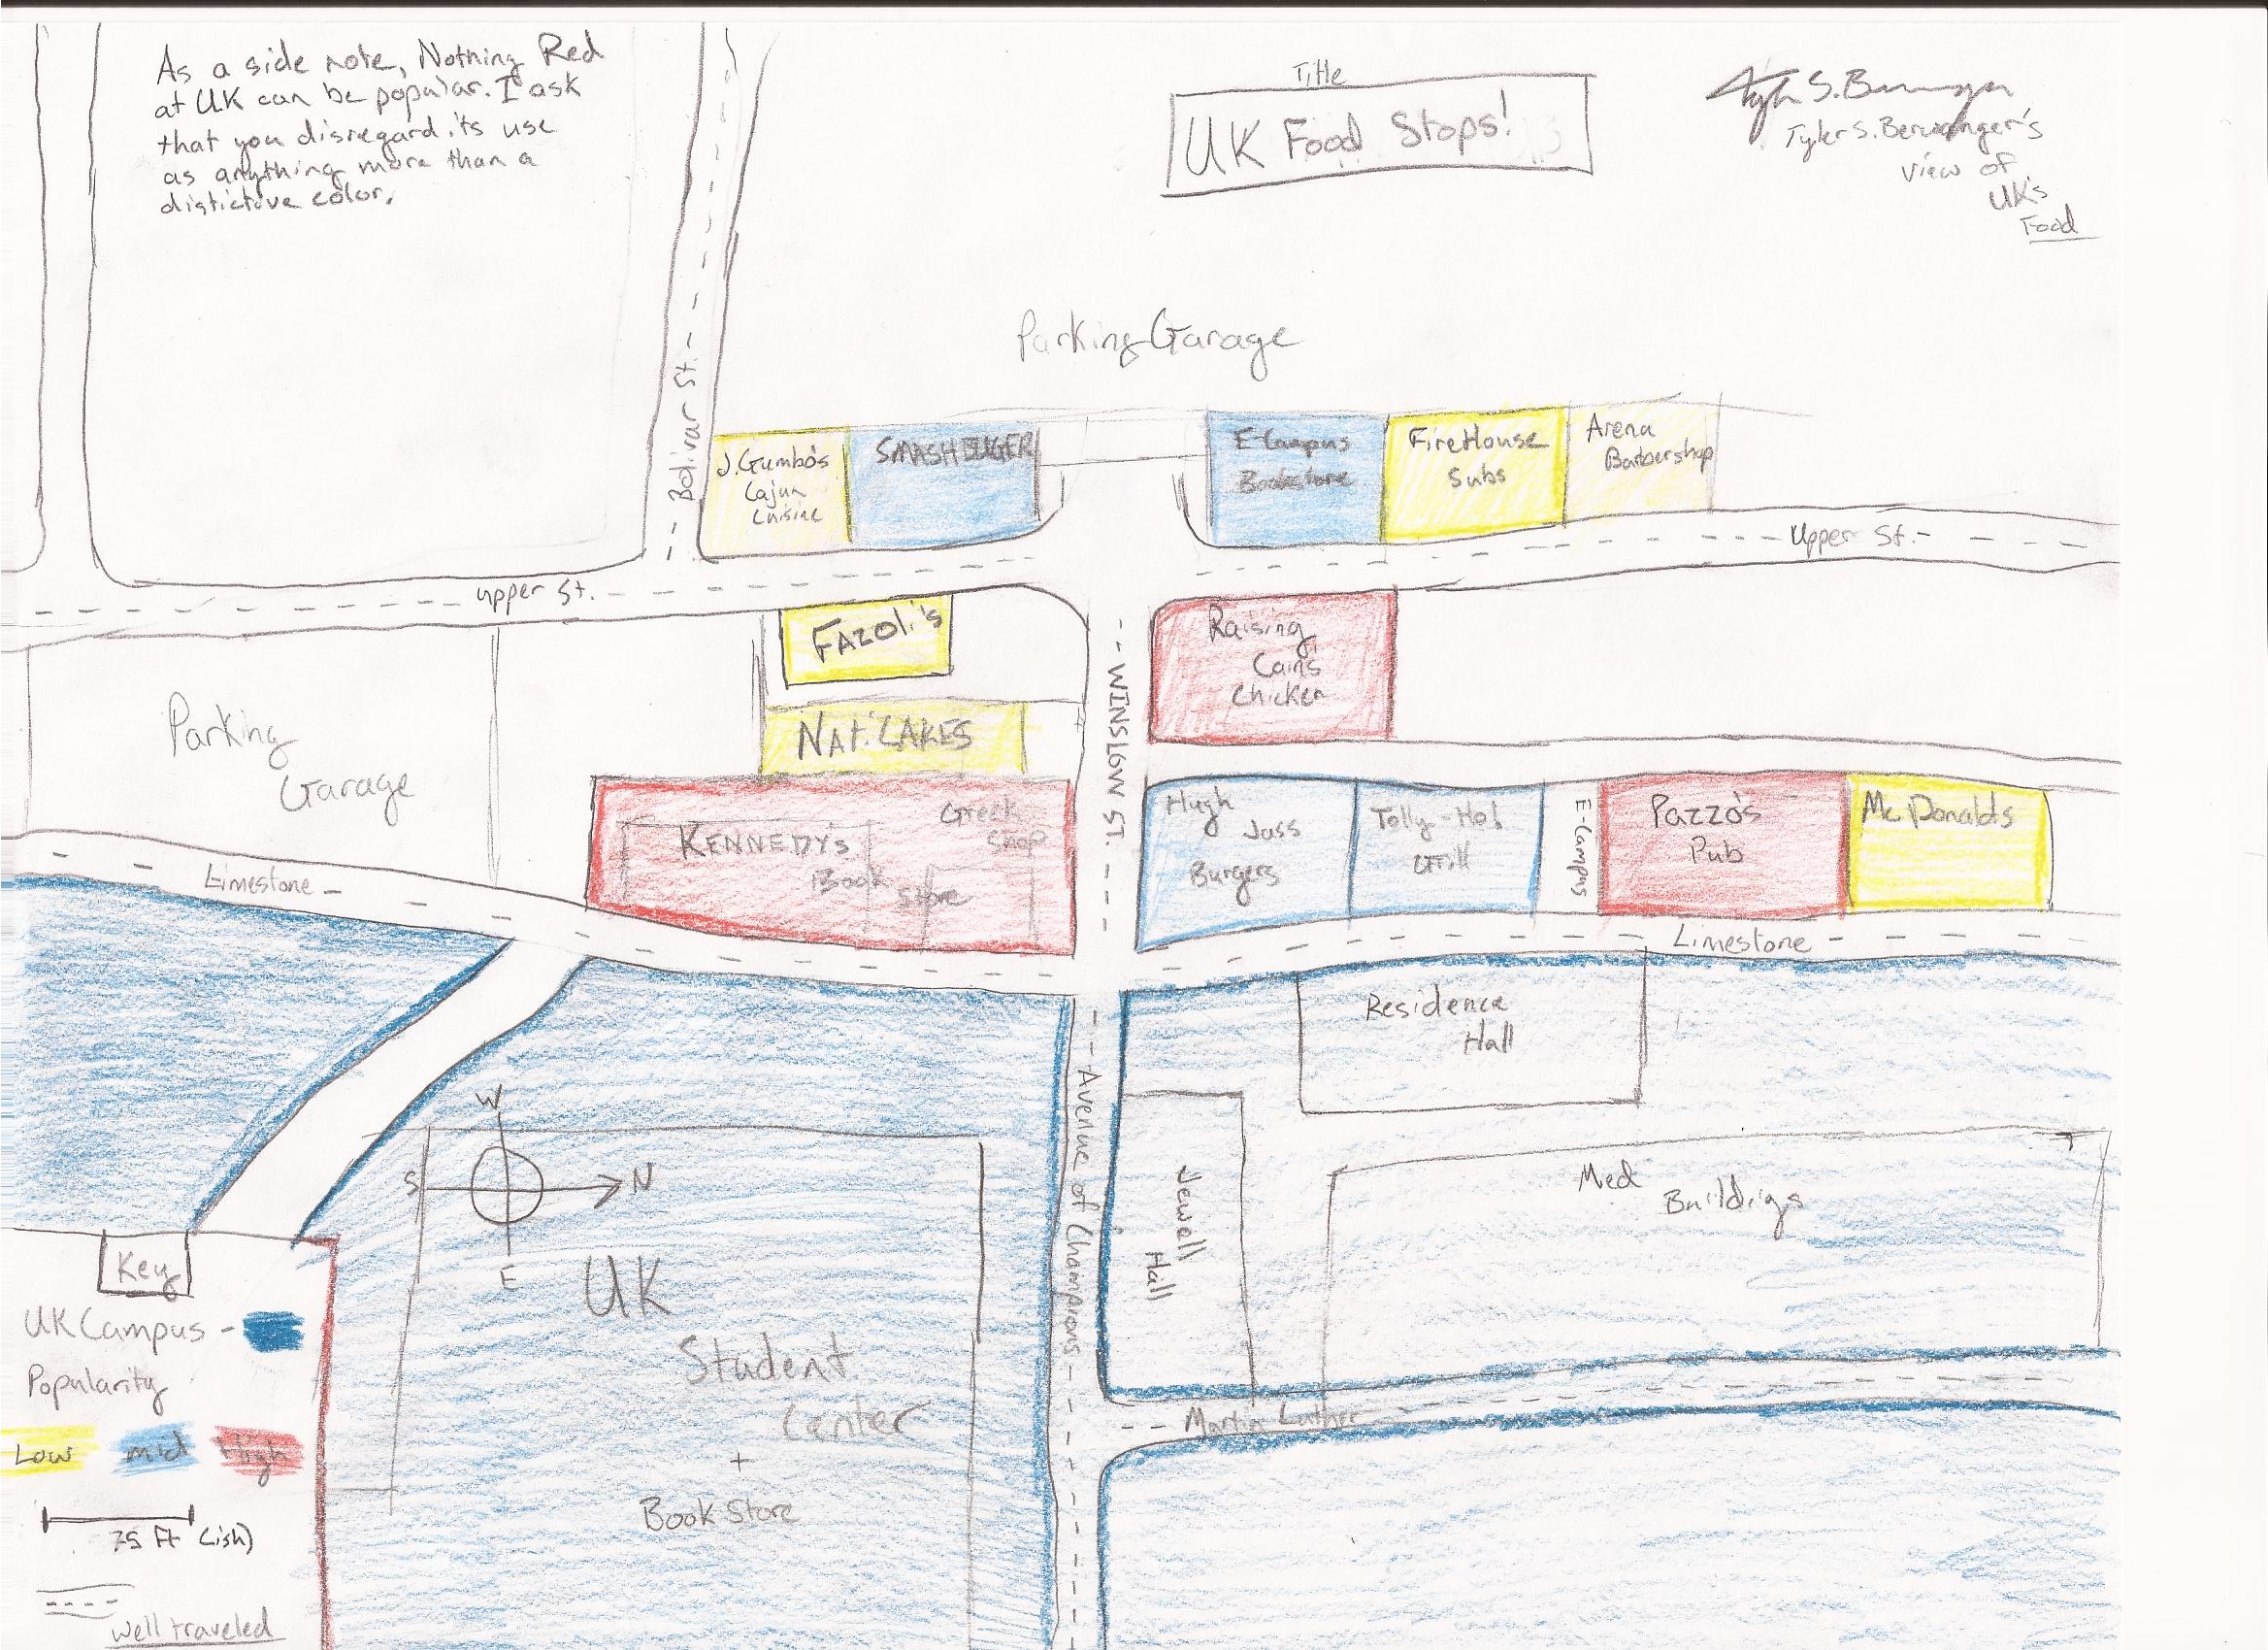 As a side note, Nothing Red
at UK can be popular. I ask
that you disregard its use
as anything more than a
distictive color.
Title
UK Food Stops!
Tyler S. Berwanger's
view of
UK's
Food
Parking Garage
Bolivar St.
J. Gumbo's
Cajun
Cuisine
SMASHBURGER
E-Campus
Bookstore
FireHouse
Subs
Arena
Barbershop
Upper St.
Upper St.
FAZOLi's
Raising
Cain's
Chicken
WINSLOW ST.
NAT. LAKES
Parking
Garage
KENNEDY's
Book
Store
Greek
Shop
Hugh
Jass
Burgers
Tolly-Ho!
Grill
E-Campus
Pazzo's
Pub
McDonalds
Limestone
Limestone
Residence
Hall
Avenue of Champions
Jewell
Hall
Med
Buildigs
W
S
N
E
UK
Student
Center
+
Book Store
Martin Luther
Key
UK Campus -
Popularity
Low
mid
High
75 Ft (ish)
well traveled